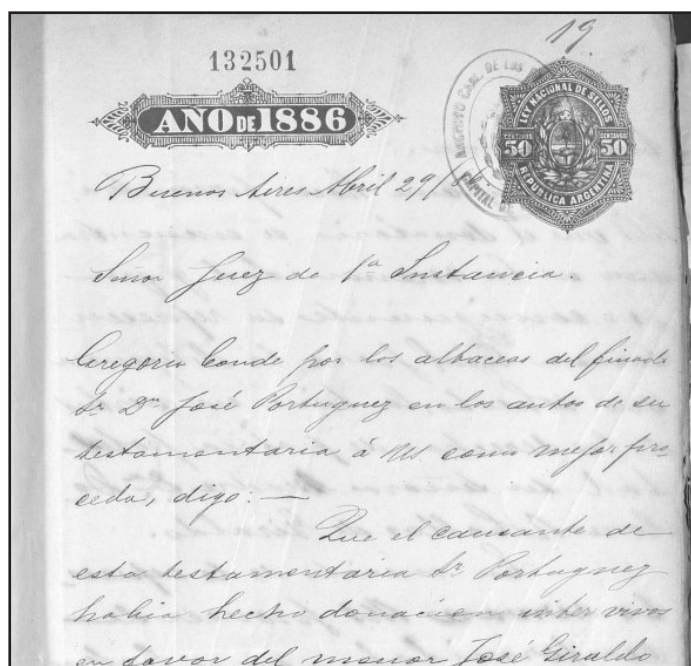 19.
132501
AÑO DE 1886
LEY NACIONAL DE SELLOS
CENTAVOS CENTAVOS
50 50
REPUBLICA ARGENTINA
ARCHIVO GRAL. DE LOS
CAPITAL DE
Buenos Aires Abril 29/86
Señor Juez de 1ª Instancia.
Gregorio Conde por los albaceas del finado
Sr. Dn José Portuguez en los autos de su
testamentaria á US. como mejor pro
ceda, digo: —
Que el causante de
esta testamentaria Sr. Portuguez
habia hecho donacion inter vivos
en favor del menor José Giraldo